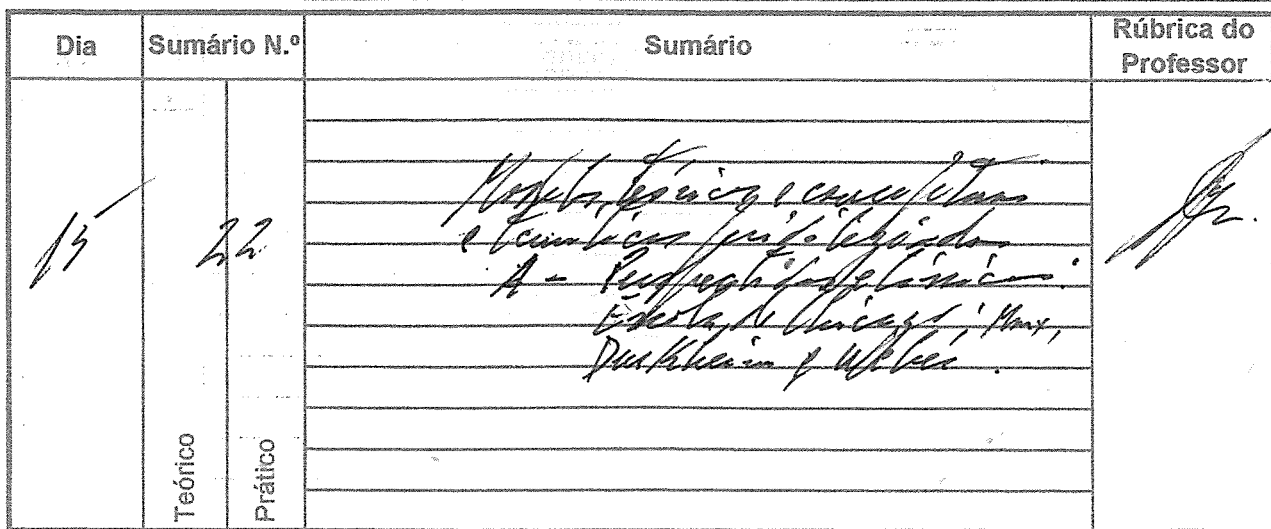 Dia Sumário N.º Sumário Rúbrica do Professor
15 22
Modelos teóricos e conceptuais
e temáticas privilegiadas
A - Perspectivas clássicas:
Escola de Chicago; Marx,
Durkheim e Weber.
Teórico Prático